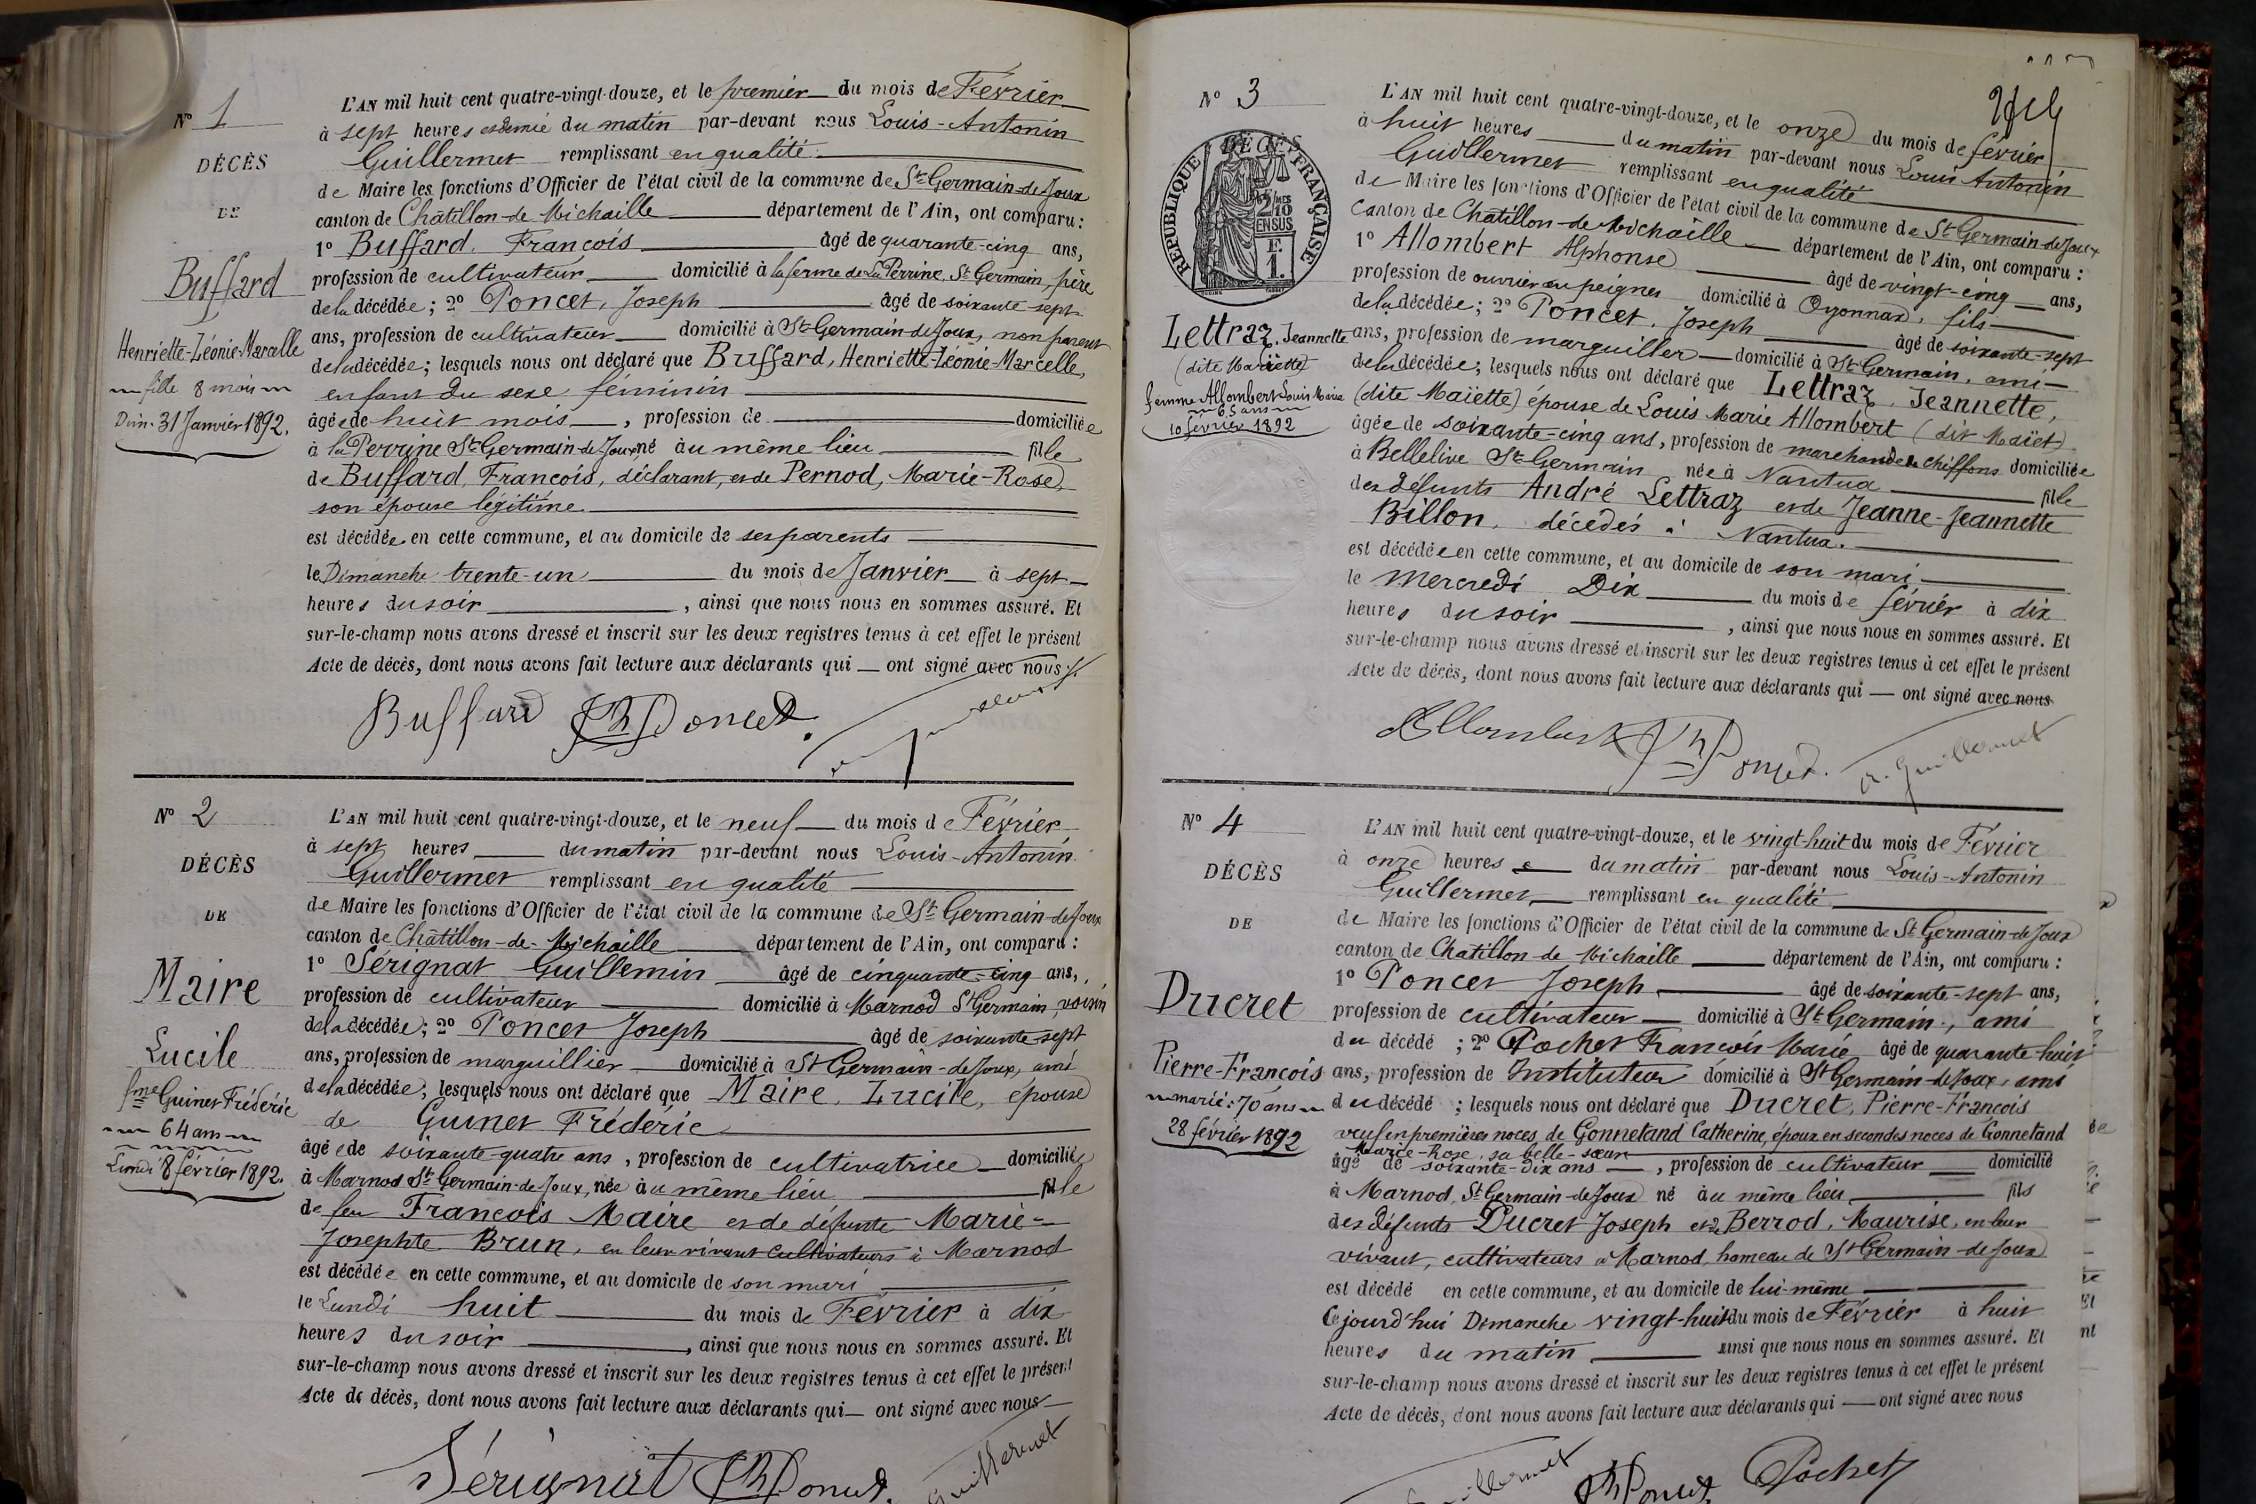 N° 1
DÉCÈS
DE
Buffard
Henriette-Léonie-Marcelle
fille 8 mois
Dim. 31 Janvier 1892.
L'AN mil huit cent quatre-vingt-douze, et le premier du mois de Février
à sept heures et demie du matin par-devant nous Louis-Antonin
Guillermet remplissant en qualité
de Maire les fonctions d'Officier de l'état civil de la commune de St Germain-de-Joux
canton de Châtillon-de-Michaille département de l'Ain, ont comparu :
1° Buffard, François âgé de quarante-cinq ans,
profession de cultivateur domicilié à la ferme de La Perrine, St Germain, père
de la décédée ; 2° Poncet, Joseph âgé de soixante-sept
ans, profession de cultivateur domicilié à St Germain-de-Joux, non parent
de la décédée ; lesquels nous ont déclaré que Buffard, Henriette-Léonie-Marcelle,
enfant du sexe féminin
âgée de huit mois, profession de domiciliée
à la Perrine St Germain-de-Joux, né au même lieu fille
de Buffard, François, déclarant, et de Pernod, Marie-Rose,
son épouse légitime.
est décédée en cette commune, et au domicile de ses parents
le Dimanche trente-un du mois de Janvier à sept
heures du soir, ainsi que nous nous en sommes assuré. Et
sur-le-champ nous avons dressé et inscrit sur les deux registres tenus à cet effet le présent
Acte de décès, dont nous avons fait lecture aux déclarants qui ont signé avec nous.
Buffard Poncet
N° 2
DÉCÈS
DE
Maire
Lucile
fme Guinet Frédéric
64 ans
Lundi 8 février 1892.
L'AN mil huit cent quatre-vingt-douze, et le neuf du mois de Février
à sept heures du matin par-devant nous Louis-Antonin
Guillermet remplissant en qualité
de Maire les fonctions d'Officier de l'état civil de la commune de St Germain-de-Joux
canton de Châtillon-de-Michaille département de l'Ain, ont comparu :
1° Sérignat Guillemin âgé de cinquante-cinq ans,
profession de cultivateur domicilié à Marnod St Germain, voisin
de la décédée ; 2° Poncet Joseph âgé de soixante-sept
ans, profession de marguillier domicilié à St Germain-de-Joux, ami
de la décédée, lesquels nous ont déclaré que Maire, Lucile, épouse
de Guinet Frédéric
âgée de soixante-quatre ans, profession de cultivatrice domiciliée
à Marnod St Germain-de-Joux, née au même lieu fille
de feu François Maire et de défunte Marie-
Josephte Brun, en leur vivant cultivateurs à Marnod
est décédée en cette commune, et au domicile de son mari
le Lundi huit du mois de Février à dix
heures du soir, ainsi que nous nous en sommes assuré. Et
sur-le-champ nous avons dressé et inscrit sur les deux registres tenus à cet effet le présent
Acte de décès, dont nous avons fait lecture aux déclarants qui ont signé avec nous
Sérignat Poncet Guillermet
N° 3
DÉCÈS
RÉPUBLIQUE FRANÇAISE
2/10 EN SUS
F. 1.
Lettraz, Jeannette
(dite Mariette)
femme Allombert Louis Marie
65 ans
10 février 1892
L'AN mil huit cent quatre-vingt-douze, et le onze du mois de février
à huit heures du matin par-devant nous Louis Antonin
Guillermet remplissant en qualité
de Maire les fonctions d'Officier de l'état civil de la commune de St Germain-de-Joux
canton de Châtillon-de-Michaille département de l'Ain, ont comparu :
1° Allombert Alphonse âgé de vingt-cinq ans,
profession de ouvrier en peignes domicilié à Oyonnax, fils
de la décédée ; 2° Poncet, Joseph âgé de soixante-sept
ans, profession de marguiller domicilié à St Germain, ami
de la décédée ; lesquels nous ont déclaré que Lettraz, Jeannette,
(dite Maïette) épouse de Louis Marie Allombert (dit Maïet)
âgée de soixante-cinq ans, profession de marchande de chiffons domiciliée
à Bellelive St Germain née à Nantua fille
des défunts André Lettraz et de Jeanne-Jeannette
Billon, décédés à Nantua.
est décédée en cette commune, et au domicile de son mari
le mercredi Dix du mois de février à dix
heures du soir, ainsi que nous nous en sommes assuré. Et
sur-le-champ nous avons dressé et inscrit sur les deux registres tenus à cet effet le présent
Acte de décès, dont nous avons fait lecture aux déclarants qui ont signé avec nous
Allombert Poncet. A. Guillermet
N° 4
DÉCÈS
DE
Ducret
Pierre-François
marié : 70 ans
28 février 1892
L'AN mil huit cent quatre-vingt-douze, et le vingt-huit du mois de Février
à onze heures du matin par-devant nous Louis-Antonin
Guillermet, remplissant en qualité
de Maire les fonctions d'Officier de l'état civil de la commune de St Germain-de-Joux
canton de Chatillon de Michaille département de l'Ain, ont comparu :
1° Poncet Joseph âgé de soixante-sept ans,
profession de cultivateur domicilié à St Germain, ami
du décédé ; 2° Pochet François Marie âgé de quarante-huit
ans, profession de Instituteur domicilié à St Germain-de-Joux, ami
du décédé ; lesquels nous ont déclaré que Ducret, Pierre-François
veuf en premières noces de Gonnetand Catherine, époux en secondes noces de Gonnetand
Marie-Rose, sa belle-sœur
âgé de soixante-dix ans, profession de cultivateur domicilié
à Marnod, St Germain-de-Joux né au même lieu fils
des défunts Ducret Joseph et de Berrod, Maurise, en leur
vivant, cultivateurs à Marnod, hameau de St Germain-de-Joux
est décédé en cette commune, et au domicile de lui-même
Ce jourd'hui Dimanche vingt-huit du mois de Février à huit
heures du matin, ainsi que nous nous en sommes assuré. Et
sur-le-champ nous avons dressé et inscrit sur les deux registres tenus à cet effet le présent
Acte de décès, dont nous avons fait lecture aux déclarants qui ont signé avec nous
Guillermet Poncet Pochet